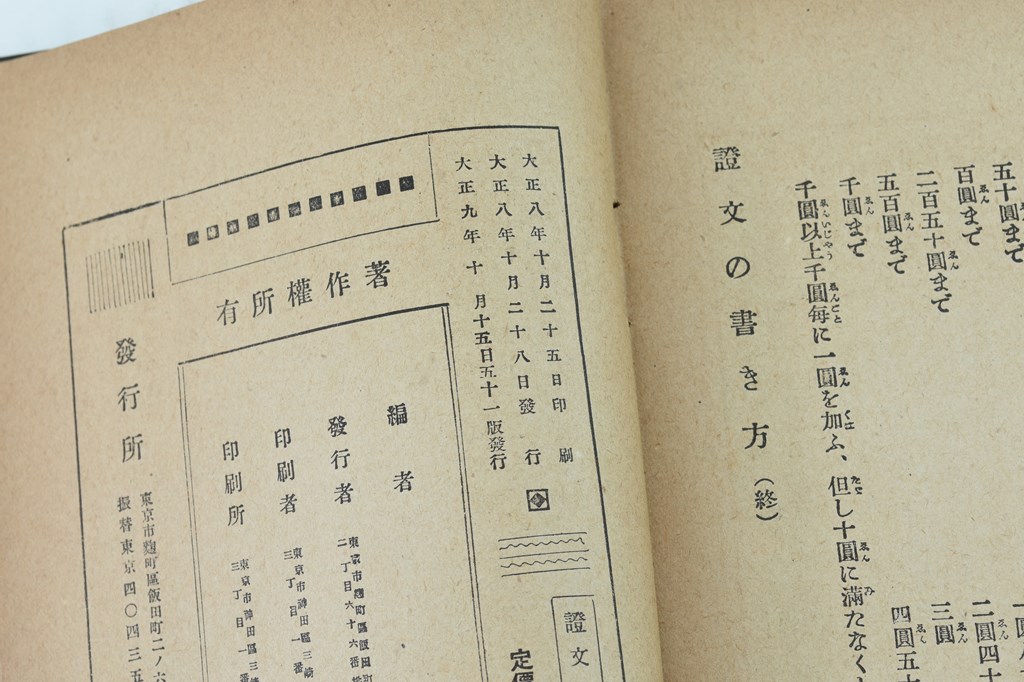 五十圓まで
百圓まで
二百五十圓まで
五百圓まで
千圓まで
千圓以上千圓每に一圓を加ふ、但し十圓に滿たなく
二圓四十
三圓
四圓五十
證文の書き方（終）
大正八年十月二十五日印刷
大正八年十月二十八日發行
大正九年十月十五日五十一版發行
證文
定價
著作權所有
編者
發行者
東京市麴町區飯田町
二丁目六十六番
印刷者
東京市神田區三崎
三丁目一番
印刷所
東京市神田區三崎
三丁目一
發行所
東京市麴町區飯田町二ノ六
振替東京四〇四三五